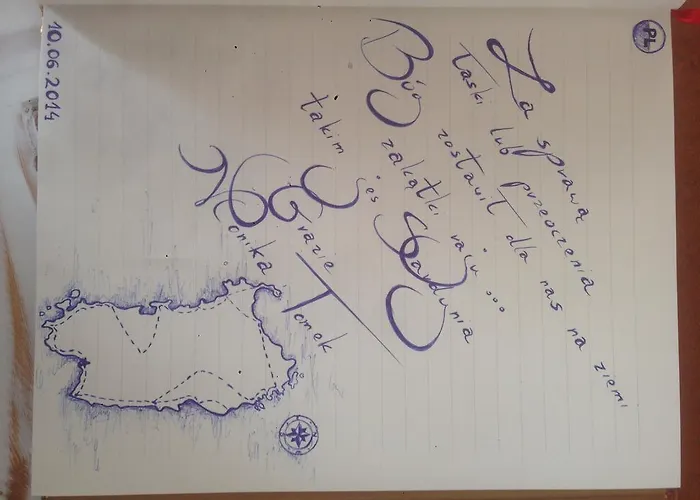 PL
Za sprawą
łaski lub przeoczenia
Bóg zostawił dla nas na ziemi
zakątki raju ...
takim jes Sardynia
Grazie
Monika Tomek
10.06.2014